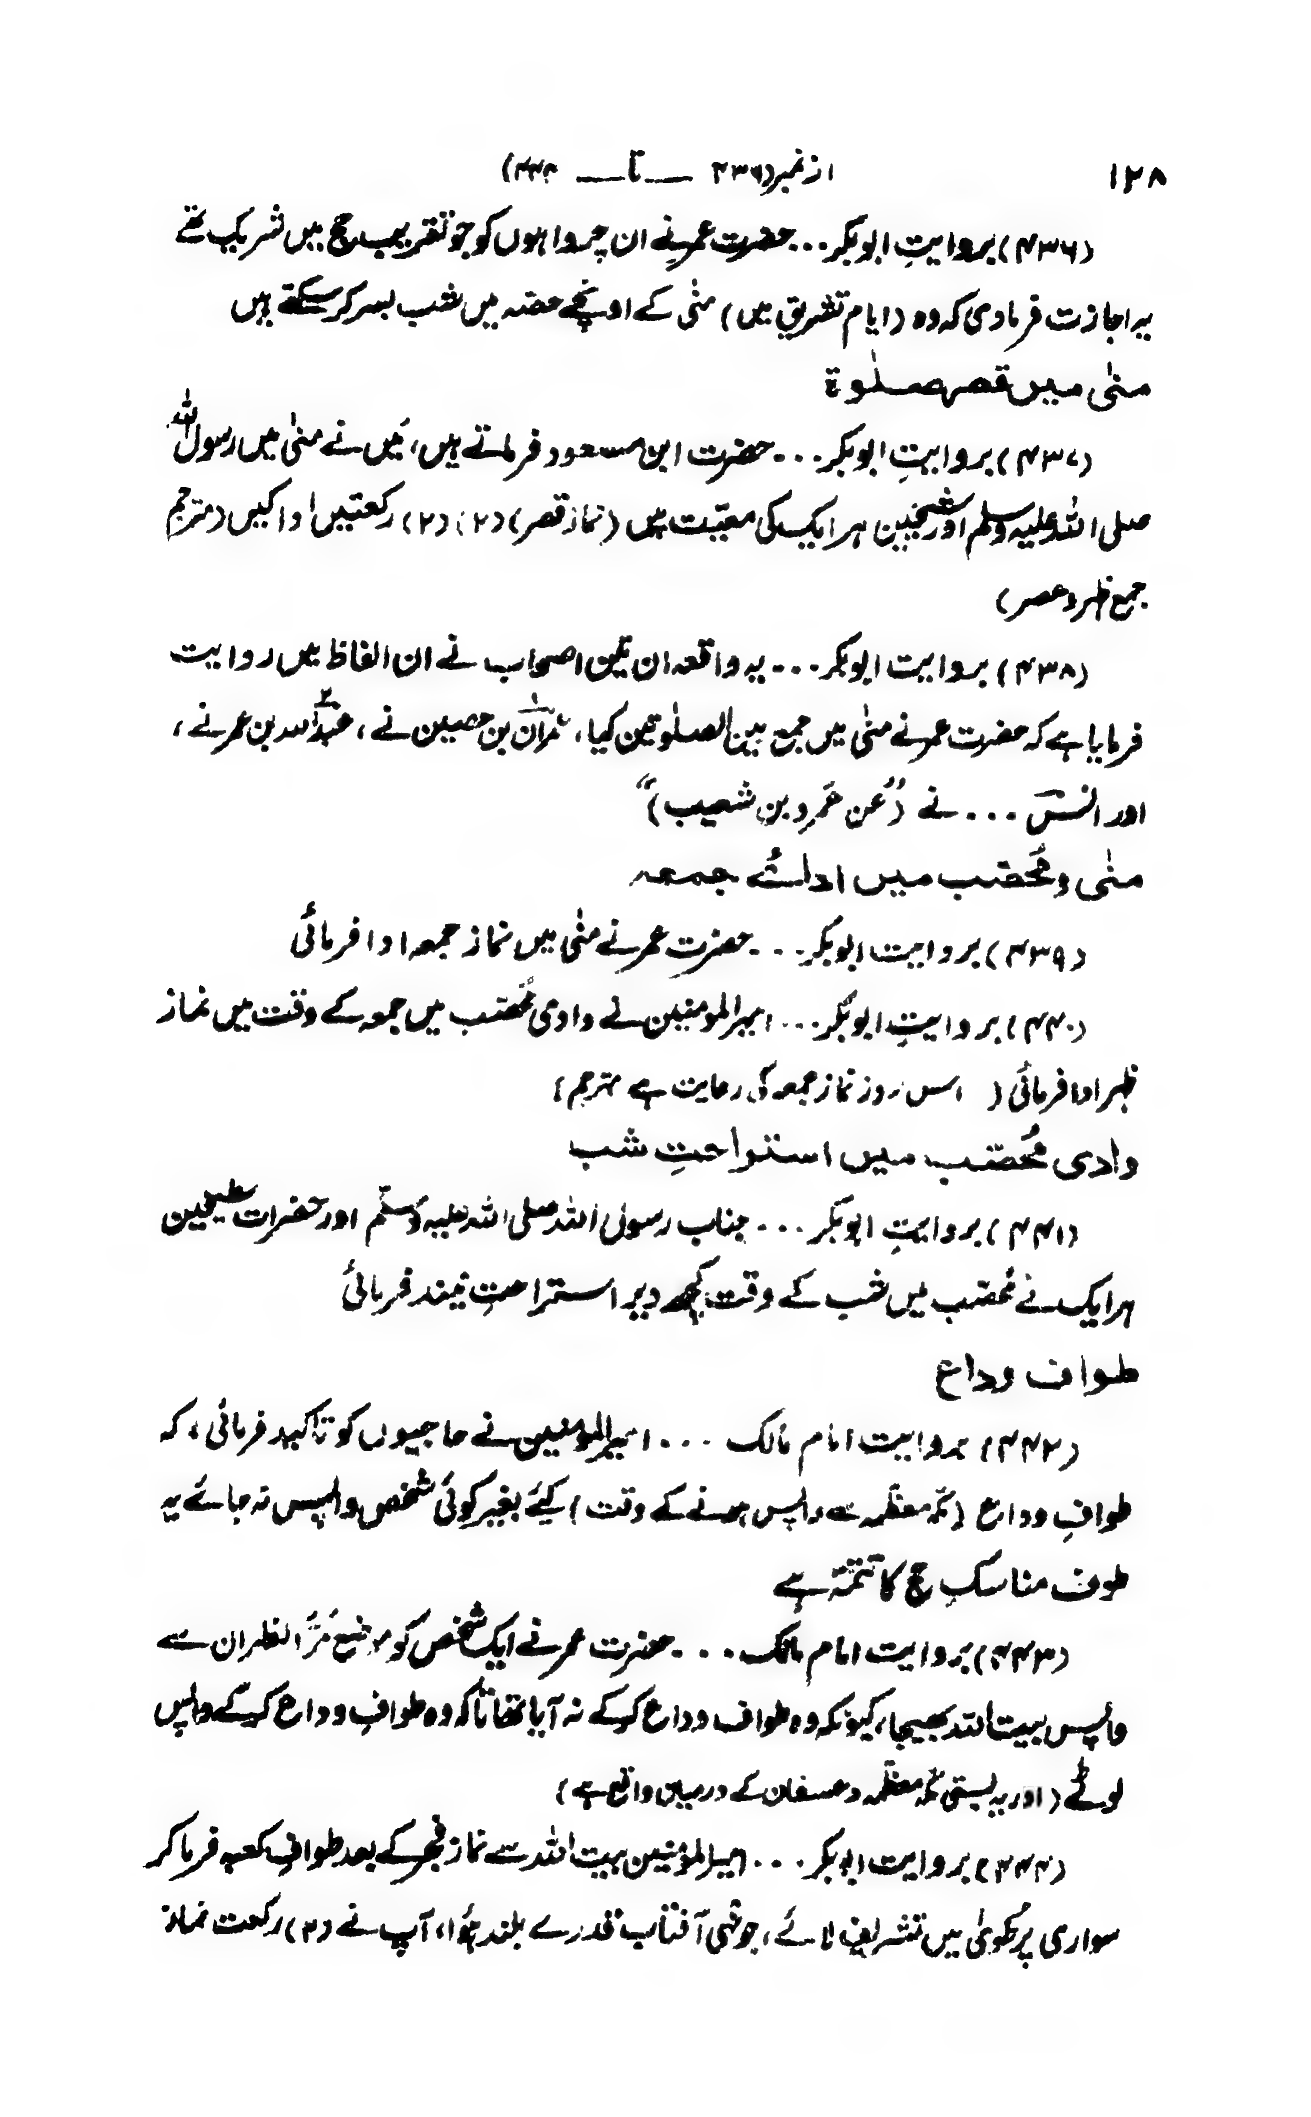 ۱۲۸ از نمبر (۴۳۶ — تا — ۴۴۴)
(۴۳۶) بروایتِ ابوبکر... حضرت عمر نے ان چرواہوں کو جو تقریب حج میں شریک تھے
یہ اجازت فرما دی کہ وہ (ایام تشریق میں) منٰی کے اونچے حصہ میں شب بسر کر سکتے ہیں
منٰی میں قصر صلٰوة
(۴۳۷) بروایتِ ابوبکر... حضرت ابن مسعود فرماتے ہیں، میں نے منٰی میں رسول اللہ
صلی اللہ علیہ وسلم اور شیخین ہر ایک کی معیّت میں (نماز قصر) (۲) (۲) رکعتیں ادا کیں (مترجم
جمع ظہر و عصر)
(۴۳۸) بروایت ابوبکر... یہ واقعہ ان تین اصحاب نے ان الفاظ میں روایت
فرمایا ہے کہ حضرت عمر نے منٰی میں جمع بین الصلٰوتین کیا، عمران بن حصین نے، عبد اللہ بن عمر نے،
اور انس ... نے (”عن عَمرو بن شعیب“)
منٰی و مُحصّب میں ادائے جمعہ
(۴۳۹) بروایت ابوبکر... حضرت عمر نے منٰی میں نماز جمعہ ادا فرمائی
(۴۴۰) بروایتِ ابوبکر... امیر المومنین نے وادی مُحصّب میں جمعہ کے وقت میں نماز
ظہر ادا فرمائی ( اس روز نماز جمعہ کی رعایت ہے مترجم)
وادی مُحصّب میں استراحتِ شب
(۴۴۱) بروایتِ ابوبکر... جناب رسول اللہ صلی اللہ علیہ وسلّم اور حضرات شیخین
ہر ایک نے مُحصّب میں شب کے وقت کچھ دیر استراحتِ نیند فرمائی
طواف وداع
(۴۴۲) بروایت امام مالک ... امیر المومنین نے حاجیوں کو تاکید فرمائی، کہ
طوافِ وداع (مکّہ معظّمہ سے واپس ہونے کے وقت) کیئے بغیر کوئی شخص واپس نہ جائے یہ
طوف مناسک حج کا تتمّہ ہے
(۴۴۳) بروایت امام مالک... حضرت عمر نے ایک شخص کو موضع مَرّ الظہران سے
واپس بیت اللہ بھیجا، کیونکہ وہ طواف وداع کر کے نہ آیا تھا تاکہ وہ طوافِ وداع کر کے واپس
لوٹے (اور یہ بستی مکّہ معظّمہ و عسفان کے درمیان واقع ہے)
(۴۴۴) بروایت ابوبکر... امیر المؤمنین بیت اللہ سے نماز فجر کے بعد طوافِ کعبہ فرما کر
سواری پر طویٰ میں تشریف لائے، جونہی آفتاب قدرے بلند ہُوا، آپ نے (۲) رکعت نماز